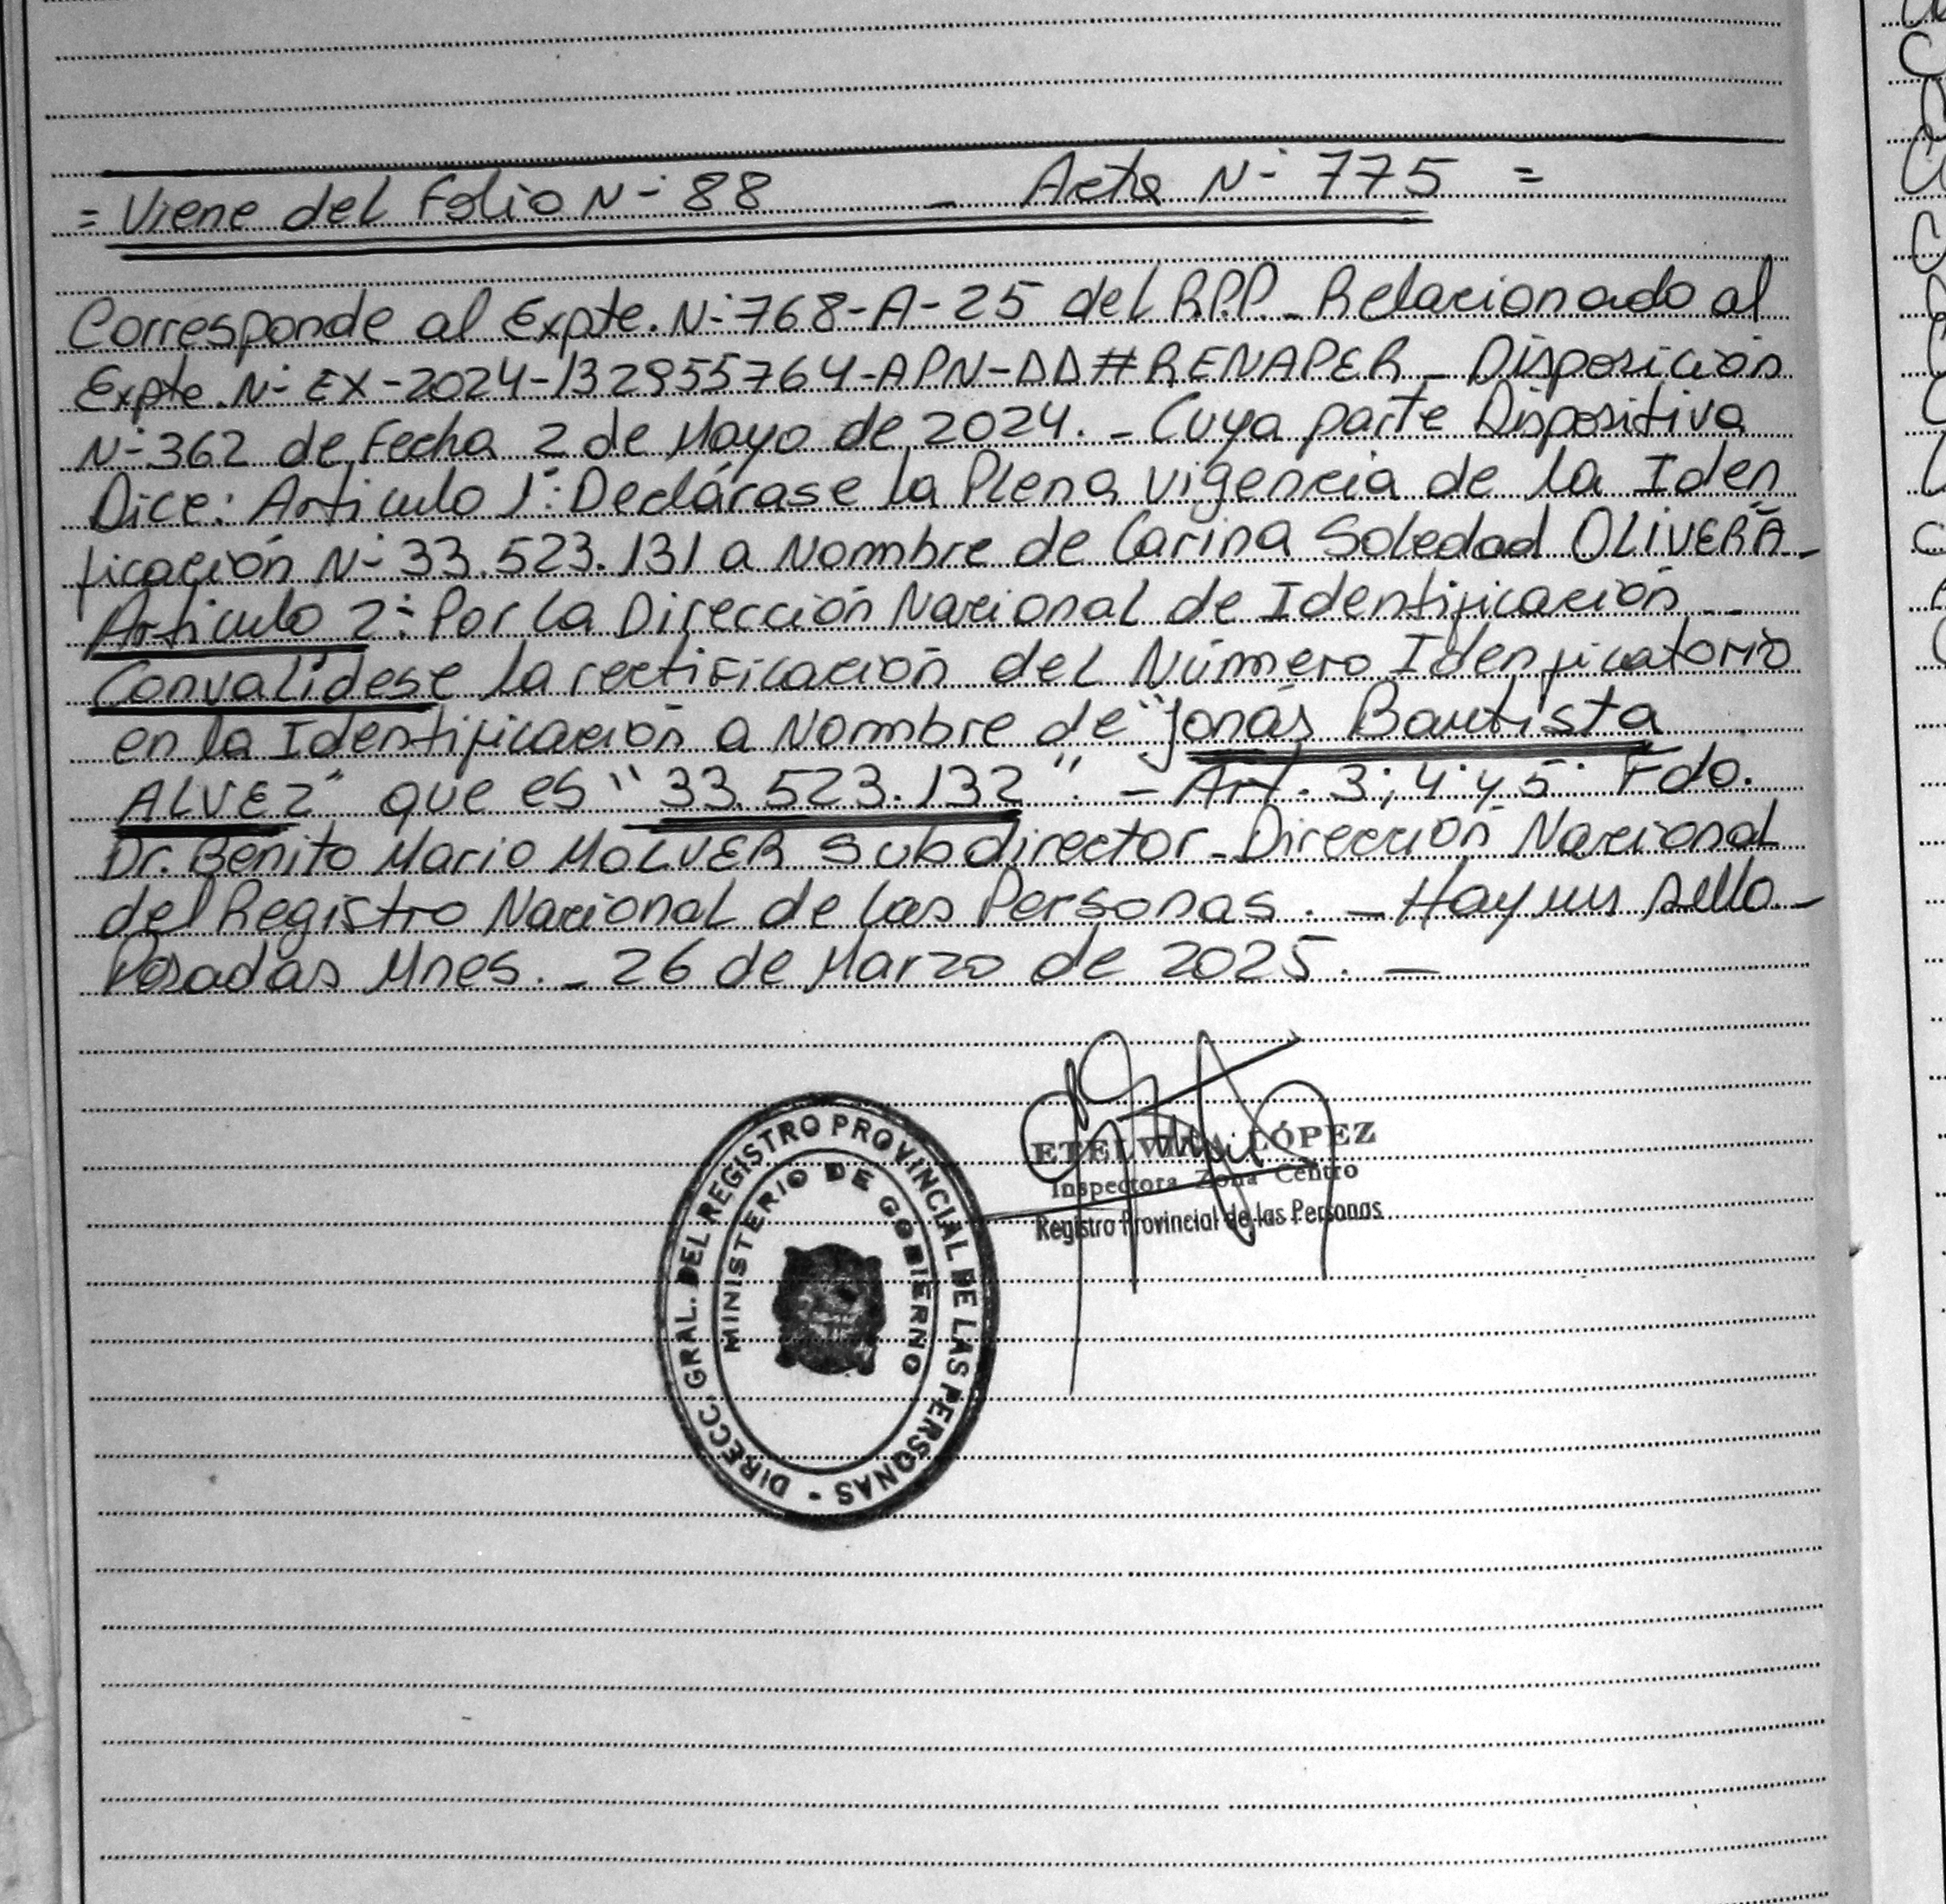 = Viene del Folio N- 88 - Acta N- 775 =
Corresponde al Expte. N- 768-A-25 del R.P.P. - Relacionado al
Expte. N- EX-2024-132955764-APN-DD#RENAPER - Disposición
N- 362 de Fecha 2 de Mayo de 2024. - Cuya parte Dispositiva
Dice: Artículo 1°: Declárase la Plena Vigencia de la Iden
ficación N- 33.523.131 a Nombre de Carina Soledad OLIVERA -
Artículo 2°: Por la Dirección Nacional de Identificación -
Convalídese la rectificación del Número Idenficatorio
en la Identificación a Nombre de "Jonás Bautista
ALVEZ" que es "33.523.132" - Art. 3; 4 y 5 Fdo.
Dr. Benito Mario MOLVER Subdirector - Dirección Nacional
del Registro Nacional de las Personas. - Hay un sello -
Posadas Mnes. - 26 de Marzo de 2025. -
DIRECC. GRAL. DEL REGISTRO PROVINCIAL DE LAS PERSONAS -
MINISTERIO DE GOBIERNO
LÓPEZ
Inspectora Zona Centro
Registro Provincial de las Personas